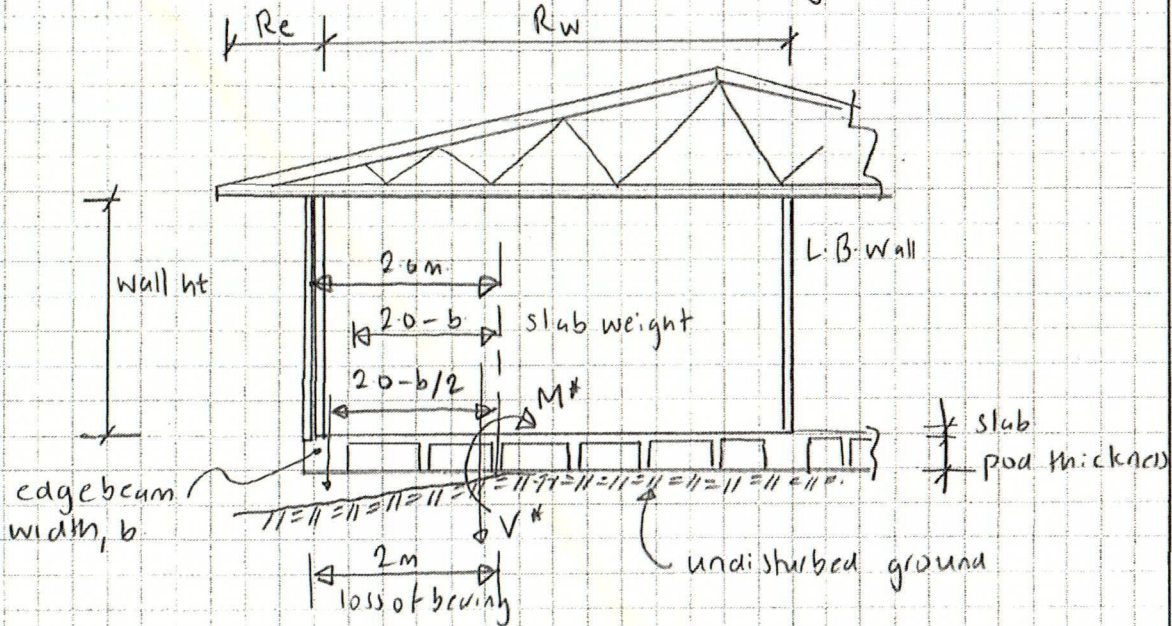 Re
Rw
Wall ht
L.B. Wall
2.0m
2.0-b
slab weight
2.0-b/2
M*
slab
pod thickness
edgebeam
width, b
V*
undisturbed ground
2m
loss of bearing